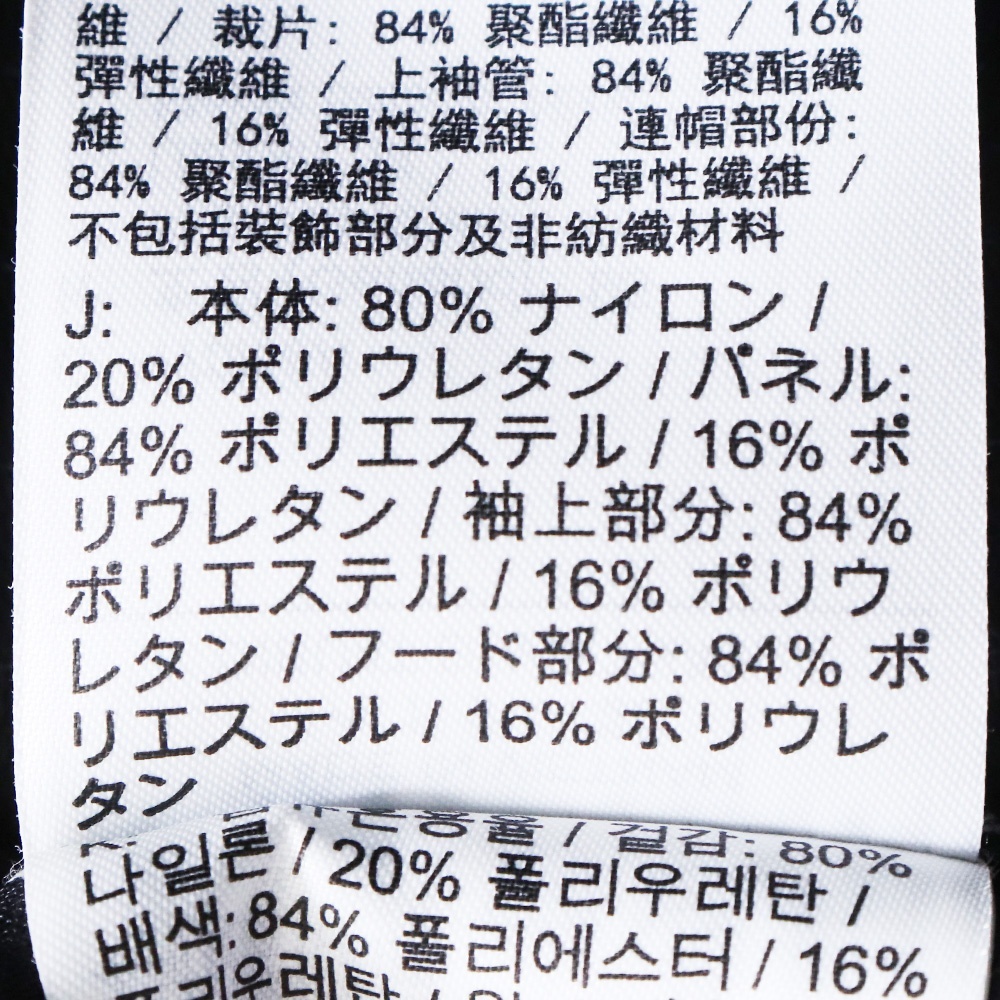 維 / 裁片: 84% 聚酯纖維 / 16%
彈性纖維 / 上袖管: 84% 聚酯纖
維 / 16% 彈性纖維 / 連帽部份:
84% 聚酯纖維 / 16% 彈性纖維 /
不包括裝飾部分及非紡織材料
J: 本体: 80% ナイロン /
20% ポリウレタン / パネル:
84% ポリエステル / 16% ポ
リウレタン / 袖上部分: 84%
ポリエステル / 16% ポリウ
レタン / フード部分: 84% ポ
リエステル / 16% ポリウレ
タン
/ 겉감: 80%
나일론 / 20% 폴리우레탄 /
배색: 84% 폴리에스터 / 16%
리우레탄 /